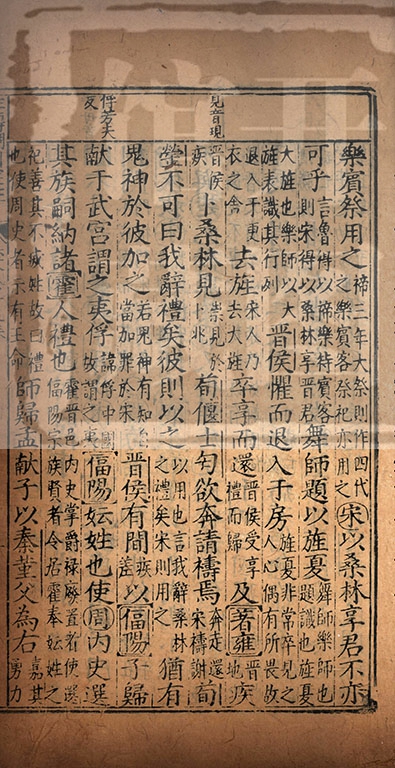 樂賓祭用之禘三年大祭則作四代之樂賓客祭祀亦用之宋以桑林享君不亦
可乎言魯得以禘樂待賓客則宋得以桑林享晉君舞師題以旌夏舞師樂師也題識也旌夏
大旌也樂師以大旌表識其行列晉侯懼而退入于房旌夏非常卒見之人心偶有所畏故
退入于更衣之舍去旌宋人乃去大旌卒享而還晉侯受享禮而歸及著雍晉地疾
見音現
晉侯疾卜桑林見祟見於卜兆荀偃士匄欲奔請禱焉奔走還宋禱謝荀
罃不可曰我辭禮矣彼則以之以用也言我辭桑林之禮矣宋則用之猶有
鬼神於彼加之若鬼神有知自當加罪於宋晉侯有間疾差以偪陽子歸
俘芳夫反
獻于武宮謂之夷俘諱俘中國故謂之夷偪陽妘姓也使周内史選
其族嗣納諸霍人禮也霍晉邑内史掌爵祿廢置者使選偪陽宗族賢者令居霍奉妘姓之
祀善其不滅姓故曰禮也使周史者示有王命師歸孟獻子以秦堇父為右嘉其勇力